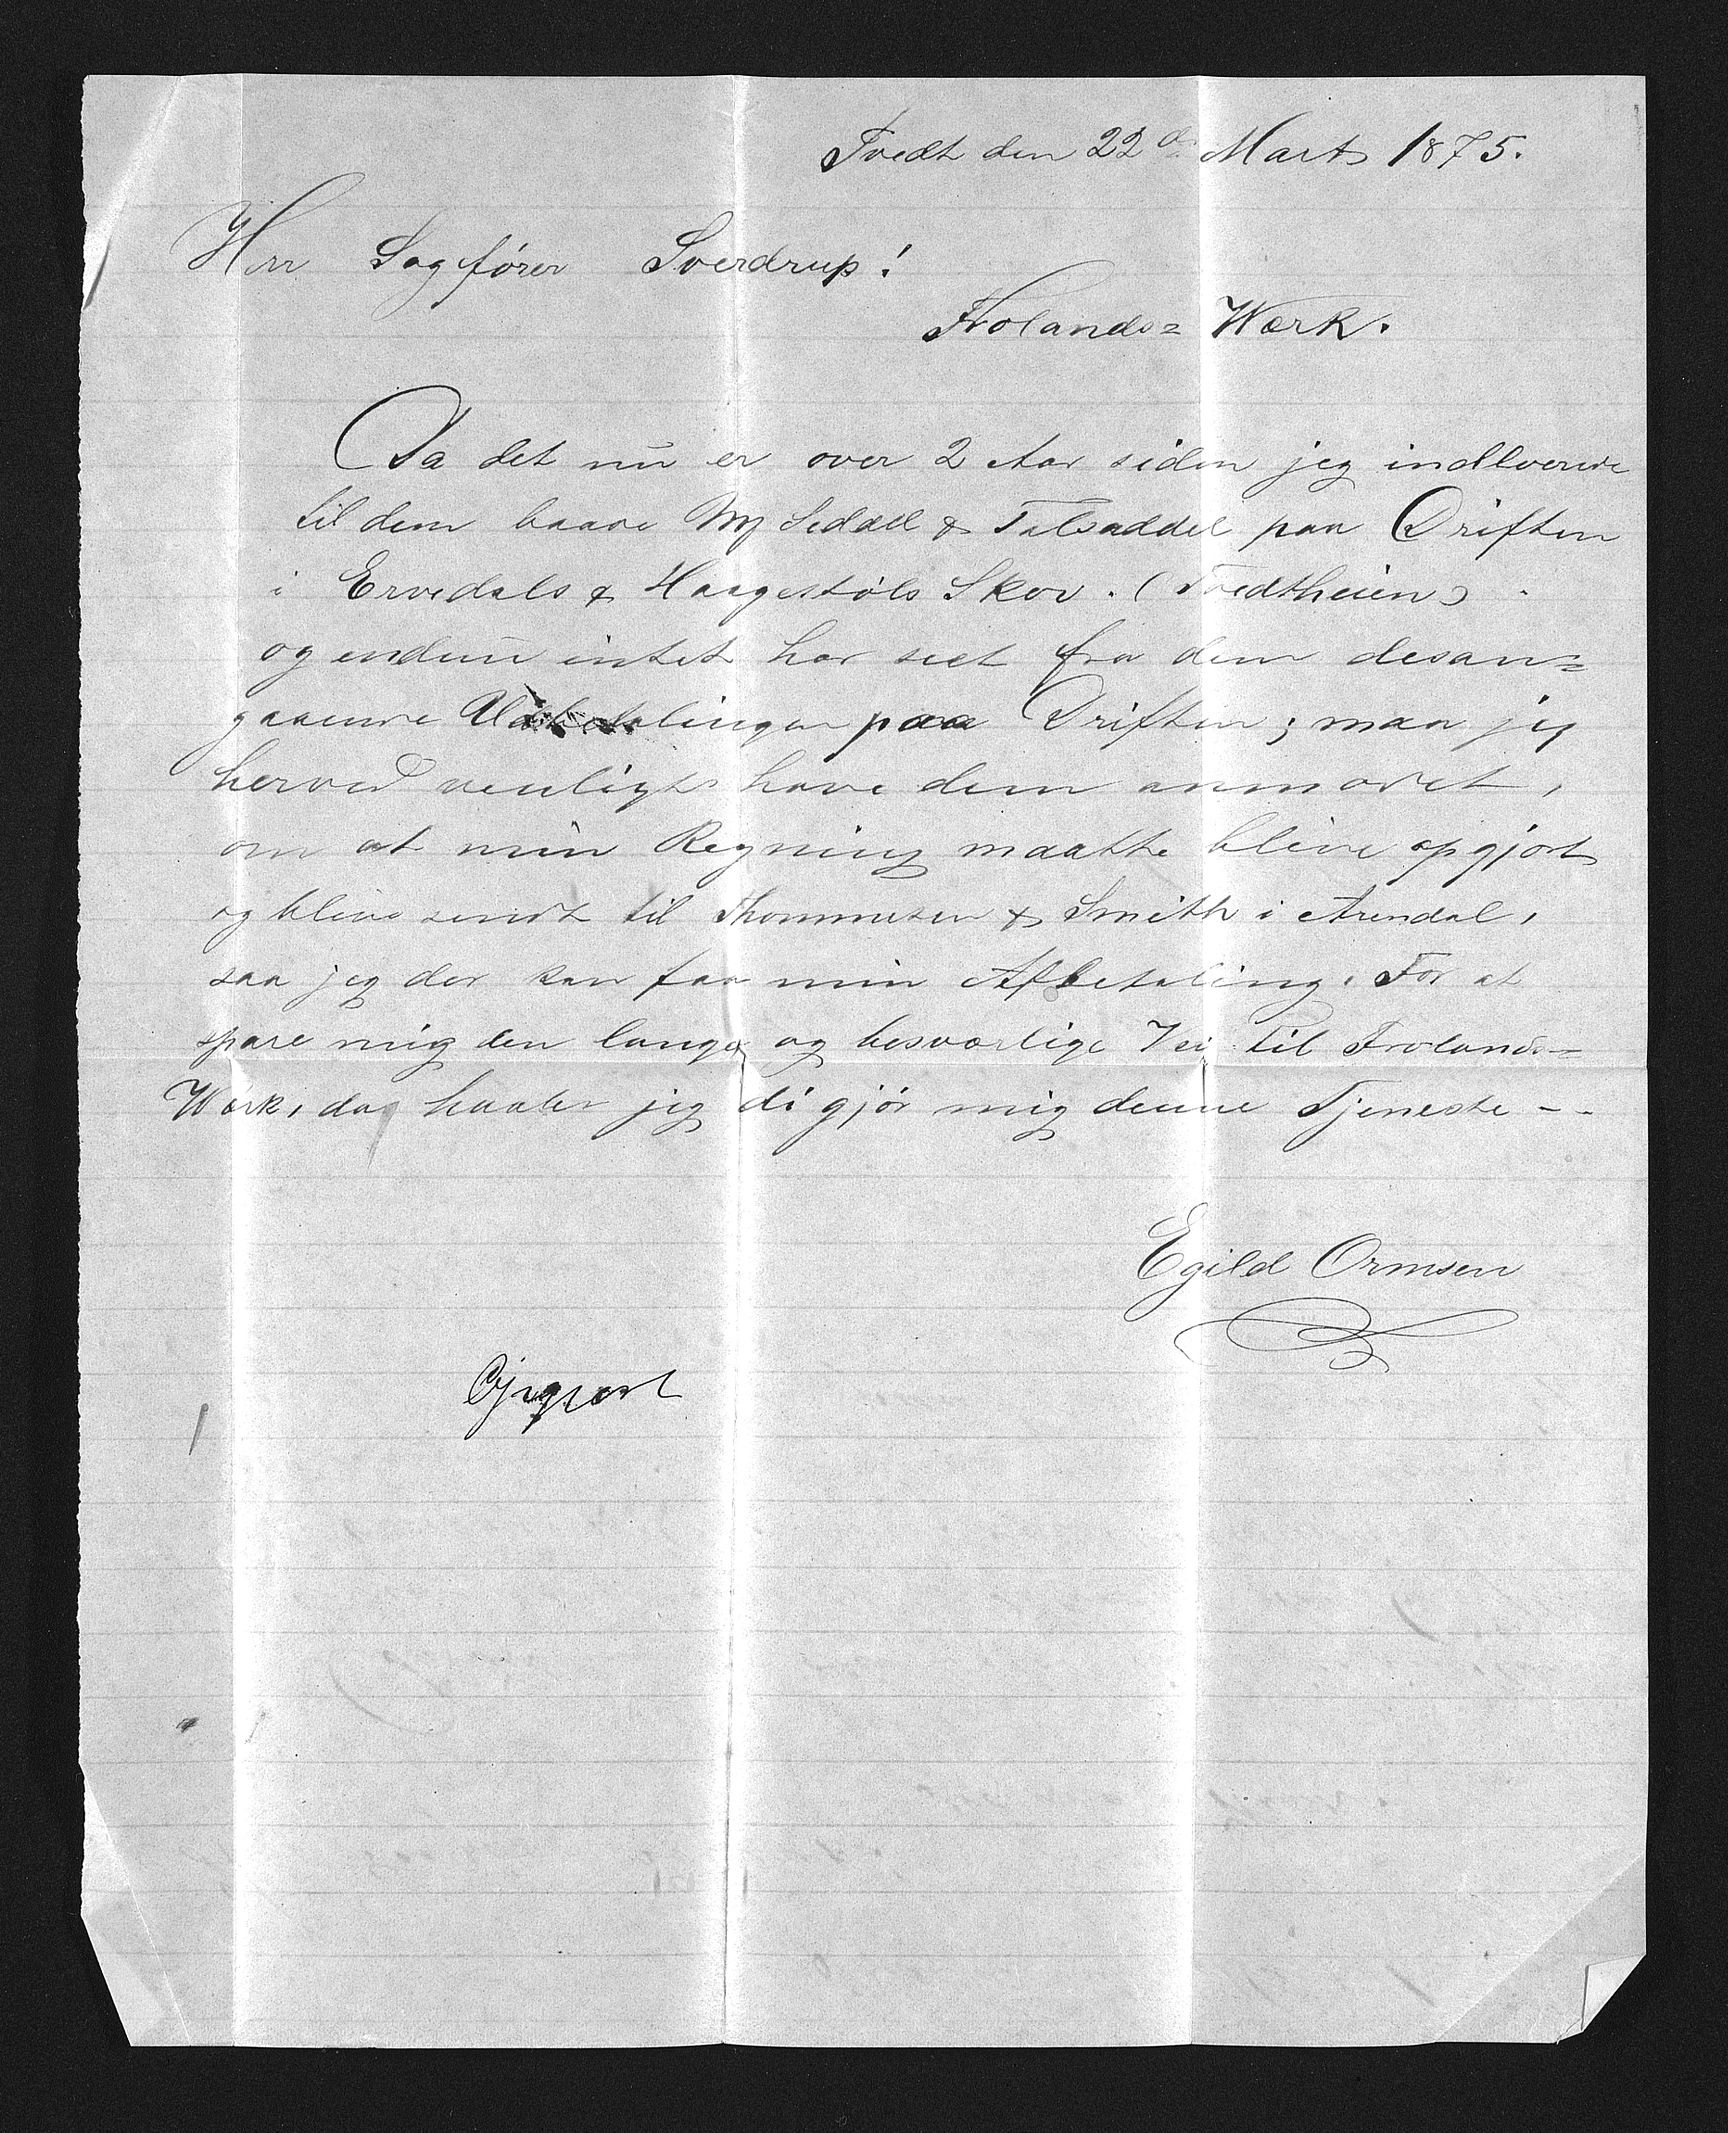 Tvedt den 22de Marts 1875.
Herr Sagfører Sverdrup!
Frolands= Wærk.
Da det nu er over 2 Aar siden jeg indleverede
til dem baade Seddel & Talseddel paa Driften
i Ervedals & Haagestøls Skov. (Tvedtheien)
og endnu intet har seet fra dem desan=
gaaende Udbetalinger paa Driften; maa jeg
herved venligst have dem anmodet,
om at min Regning maatte blive opgjort
og blive sendt til Thommesen & Smith i Arendal,
saa jeg der kan faa min Afbetaling. For at
spare mig den lange og besværlige Vei til Frolands=
Wærk, da haaber jeg di gjør mig denne Tjeneste - -
Egild Ormsen